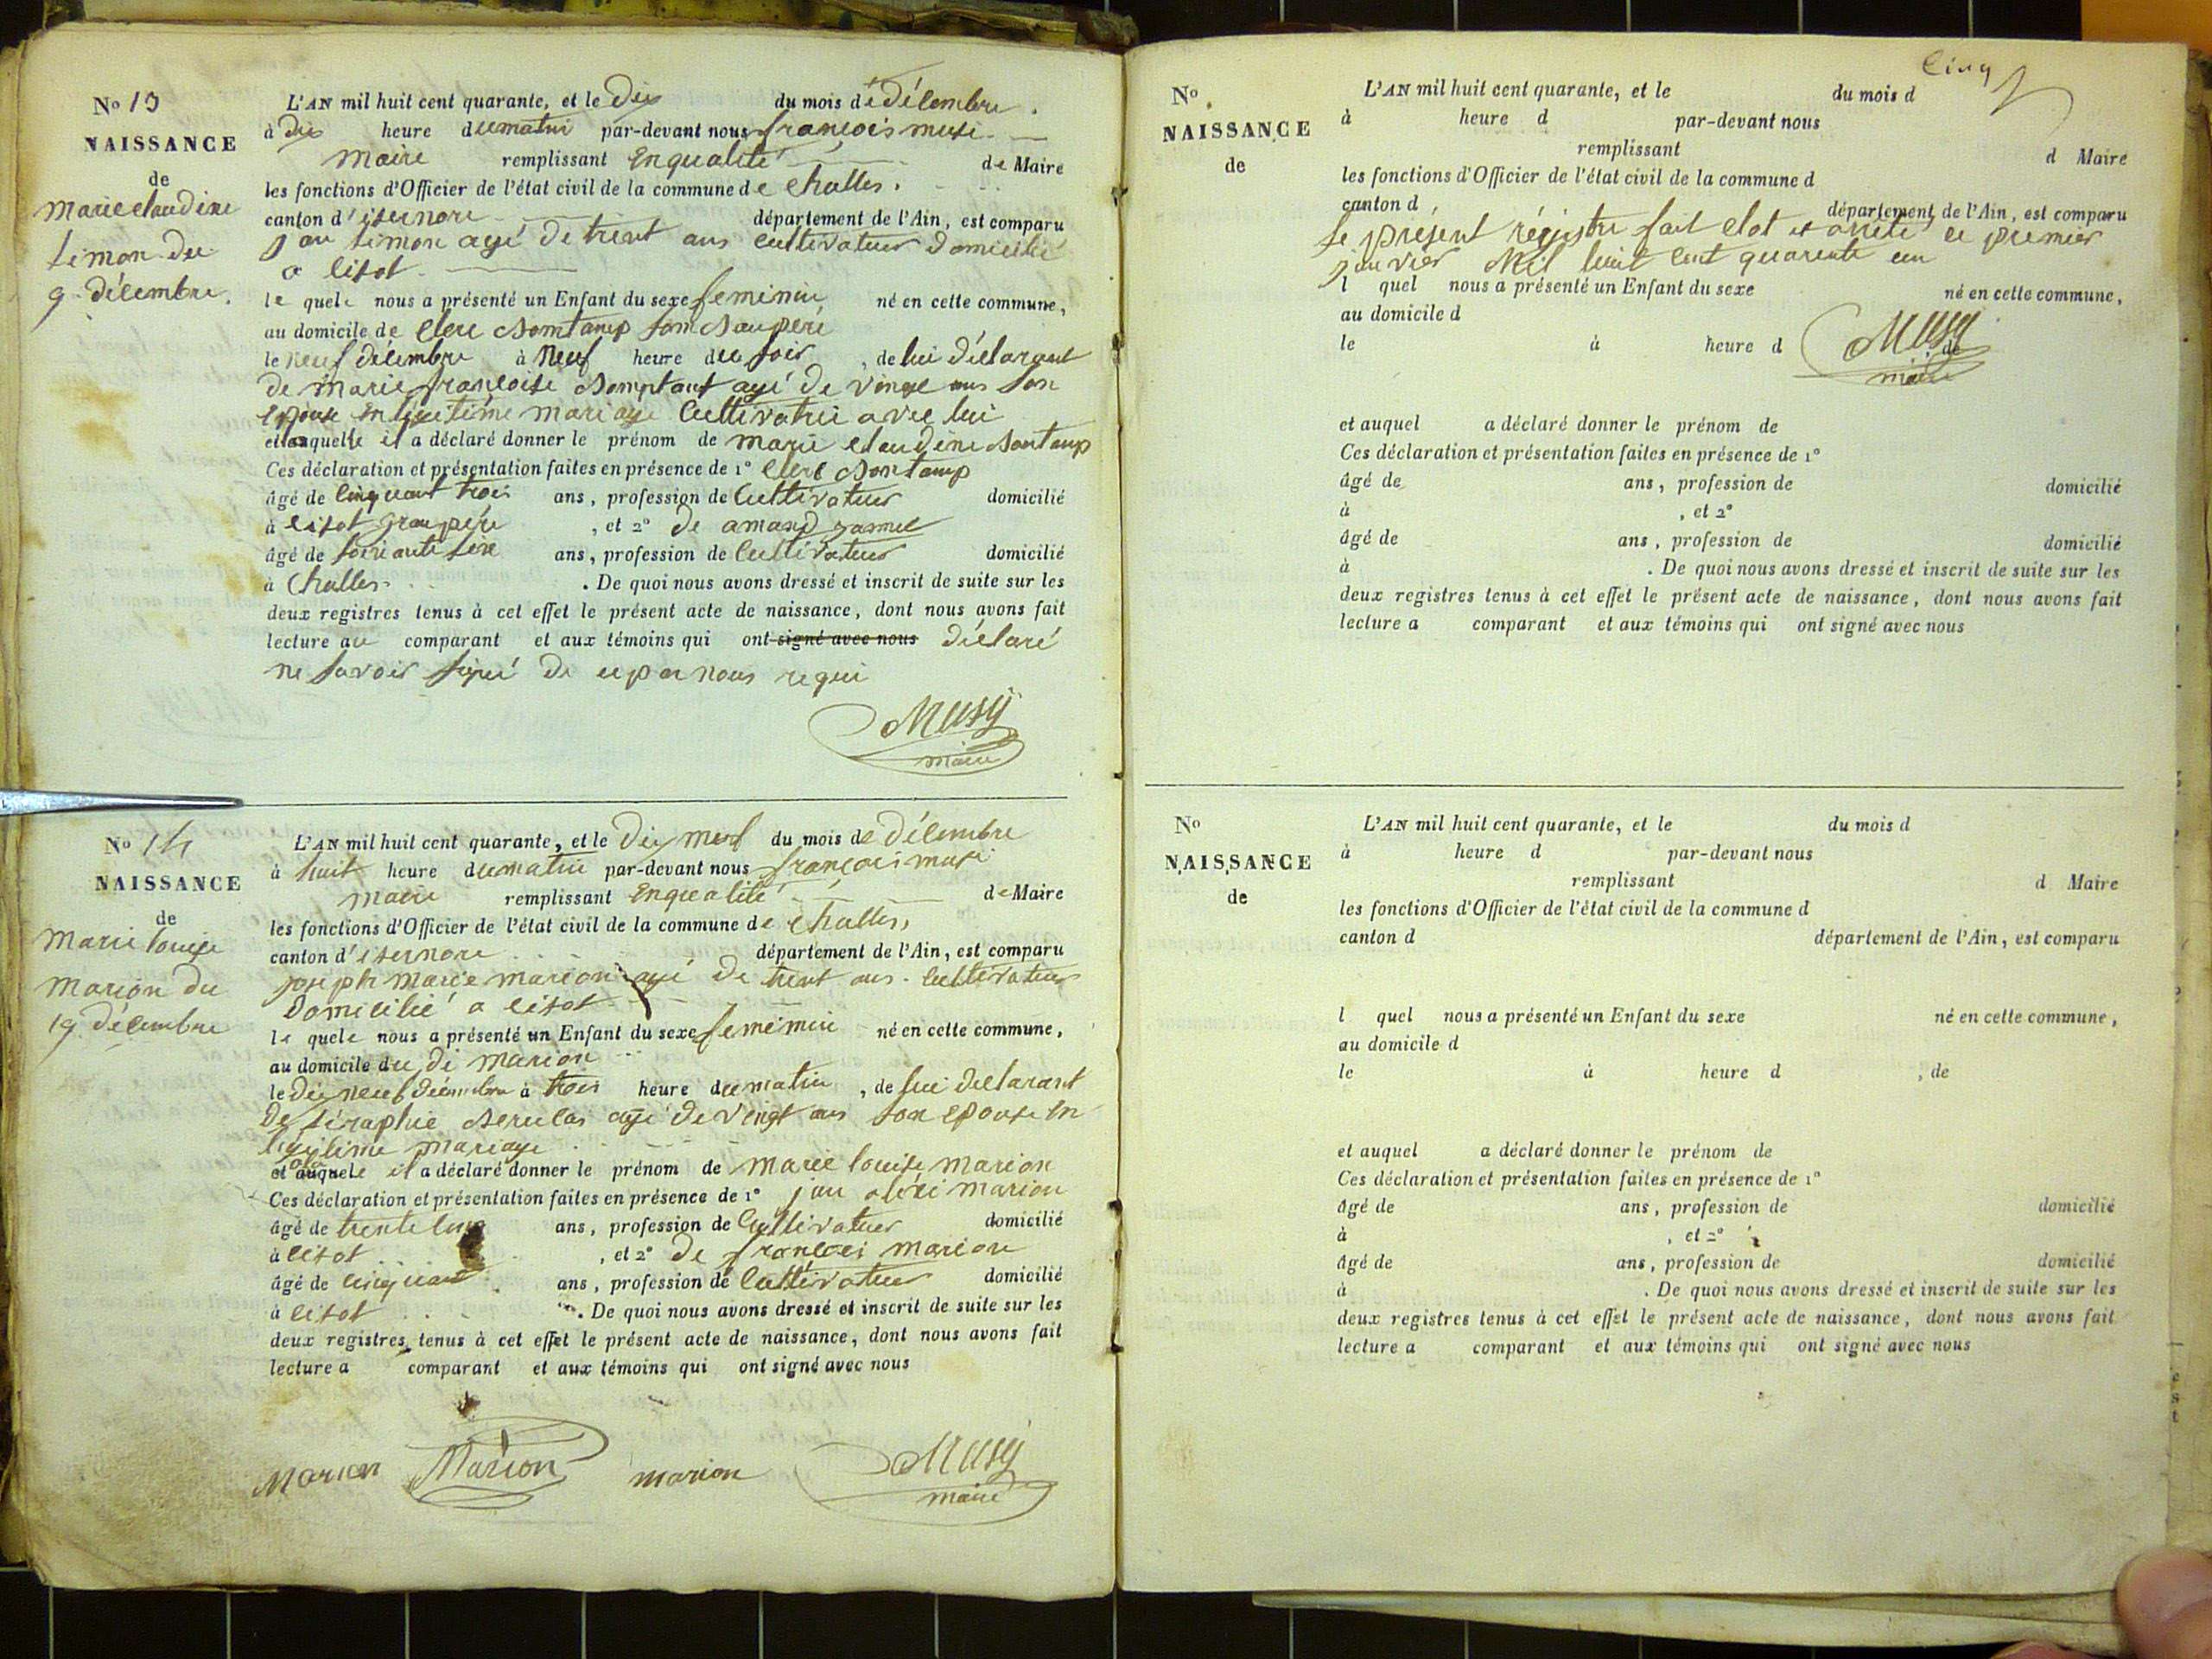 No 13
NAISSANCE
de
marie claudine
timon du
9 décembre.
L'AN mil huit cent quarante, et le dix du mois de décembre.
à dix heure dumatin par-devant nous françois musi
maire remplissant enqualité de Maire
les fonctions d'Officier de l'état civil de la commune de challes.
canton d'isernore département de l'Ain, est comparu
jan timon agé de trent ans cultivateur domicilié
a lisot
le quele nous a présenté un Enfant du sexe feminin né en cette commune,
au domicile de clere son
le neuf décembre à neuf heure du soir, de lui déclarant
de marie françoise agé de ans son
epouse en mariage cultivatrie avec lui
et laquelle il a déclaré donner le prénom de marie claudine
Ces déclaration et présentation faites en présence de 1°
âgé de cinquant trois ans, profession de cultivateur domicilié
à lisot granpère, et 2° de amand
âgé de soixante sixe ans, profession de cultivateur domicilié
à challes. De quoi nous avons dressé et inscrit de suite sur les
deux registres tenus à cet effet le présent acte de naissance, dont nous avons fait
lecture au comparant et aux témoins qui ont signé avec nous déclaré
ne savoir signé de par nous requi
Musy
maire
No 14
NAISSANCE
de
marie louise
marion du
19 décembre
L'AN mil huit cent quarante, et le dix neuf du mois de décembre
à huit heure dumatin par-devant nous françois musi
maire remplissant enqualité de Maire
les fonctions d'Officier de l'état civil de la commune de challes,
canton d'isernore département de l'Ain, est comparu
joseph marie marion agé de trent ans cultivateur
domicilié a lisot
le quele nous a présenté un Enfant du sexe feminin né en cette commune,
au domicile du di marion
le dix neuf décembre à trois heure dumatin, de lui declarant
de séraphie agé de vingt ans son epouse en
mariage
et auquele il a déclaré donner le prénom de marie louise marion
Ces déclaration et présentation faites en présence de 1° jan marion
âgé de trente ans, profession de cultivateur domicilié
à lisot, et 2° de françoi marion
âgé de cinquant ans, profession de cultivateur domicilié
à lisot. De quoi nous avons dressé et inscrit de suite sur les
deux registres tenus à cet effet le présent acte de naissance, dont nous avons fait
lecture a comparant et aux témoins qui ont signé avec nous
Marion Marion marion Musy
maire
cinq
No
NAISSANCE
de
L'AN mil huit cent quarante, et le du mois d
à heure d par-devant nous
remplissant d Maire
les fonctions d'Officier de l'état civil de la commune d
canton d, département de l'Ain, est comparu
le présent régistre fait clot et arrêté ce premier
janvier Mil huit cent quarente un
l quel nous a présenté un Enfant du sexe né en cette commune,
au domicile d
le à heure d , de
Musy
maire
et auquel a déclaré donner le prénom de
Ces déclaration et présentation faites en présence de 1°
âgé de ans, profession de domicilié
à , et 2°
âgé de ans, profession de domicilié
à . De quoi nous avons dressé et inscrit de suite sur les
deux registres tenus à cet effet le présent acte de naissance, dont nous avons fait
lecture a comparant et aux témoins qui ont signé avec nous
No
NAISSANCE
de
L'AN mil huit cent quarante, et le du mois d
à heure d par-devant nous
remplissant d Maire
les fonctions d'Officier de l'état civil de la commune d
canton d département de l'Ain, est comparu
l quel nous a présenté un Enfant du sexe né en cette commune,
au domicile d
le à heure d , de
et auquel a déclaré donner le prénom de
Ces déclaration et présentation faites en présence de 1°
âgé de ans, profession de domicilié
à , et 2°
âgé de ans, profession de domicilié
à . De quoi nous avons dressé et inscrit de suite sur les
deux registres tenus à cet effet le présent acte de naissance, dont nous avons fait
lecture a comparant et aux témoins qui ont signé avec nous